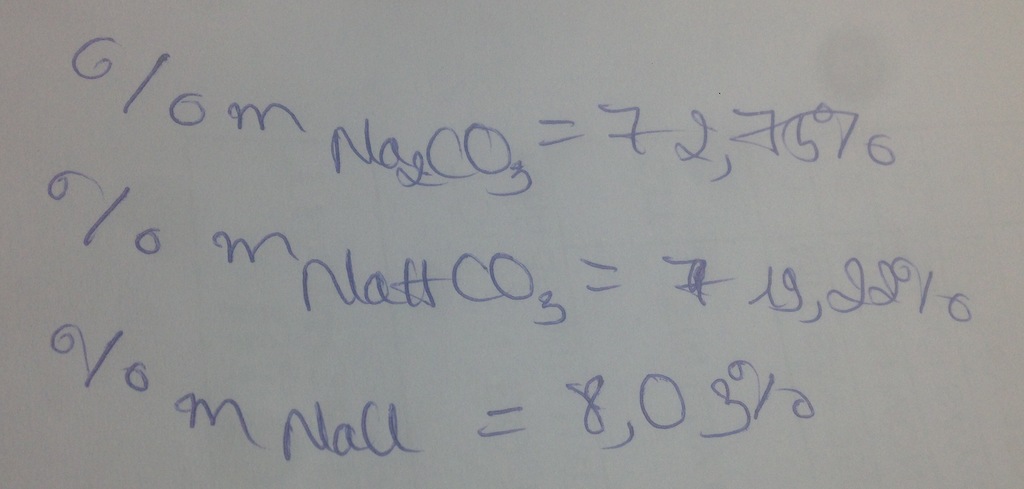 %m Na₂CO₃ = 72,75%
%m NaHCO₃ = 19,22%
%m NaCl = 8,03%